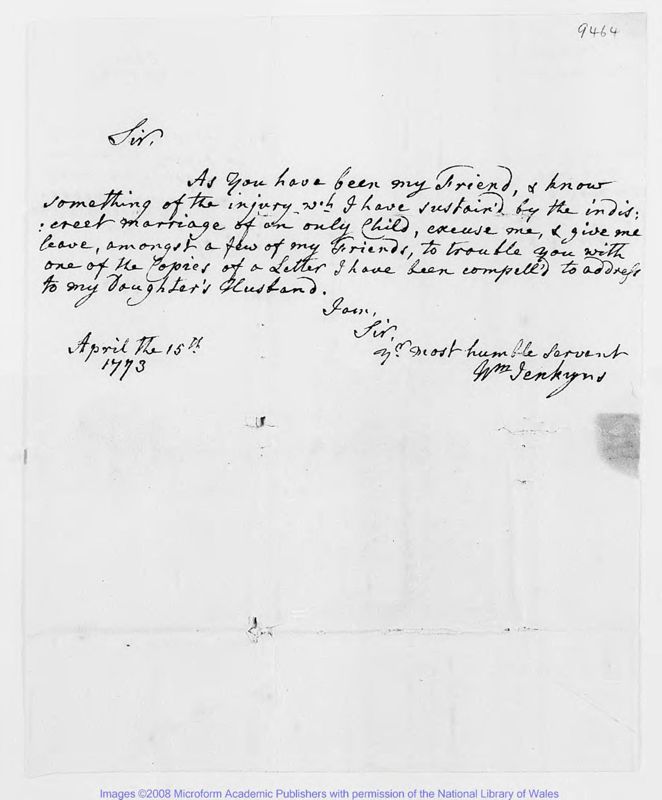 9464
Sir,
As you have been my Friend, & know
something of the injury wch I have sustain'd by the indis:
:creet marriage of an only Child, excuse me, & give me
leave, amongst a few of my Friends, to trouble you with
one of the Copies of a Letter I have been compell'd to address
to my Daughter's Husband.
I am,
Sir,
yr most humble servant
Wm Jenkyns
April the 15th
1773
Images ©2008 Microform Academic Publishers with permission of the National Library of Wales